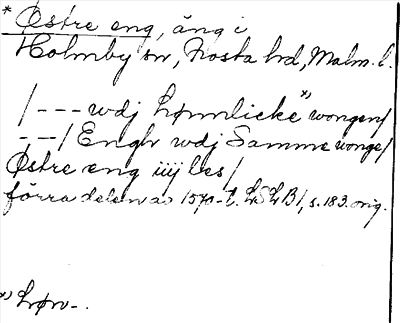 * Østre eng, äng i
Holmby sn, Frosta hd, Malm. l.
/--- wdj Lønnlicke *) wongen/
--/ Engh wdj Samme wonge/
Østre eng iiij les/
förra delen av 1570-t. LSLB 1, s. 183. orig.
*) Løn-.